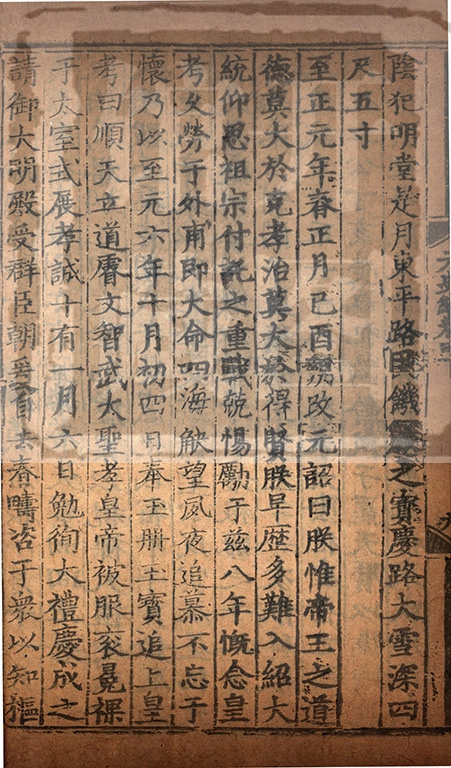 陰犯明堂是月東平路國饑賑之寳慶路大雪深四
尺五寸
至正元年春正月己酉朔改元詔曰朕惟帝王之道
德莫大於克孝治莫大於得賢朕早歷多難入紹大
統仰思祖宗付託之重戰兢惕勵于兹八年慨念皇
考久勞于外甫即大命四海觖望夙夜追慕不忘于
懷乃以至元六年十月初四日奉玉冊玉寳追上皇
考曰順天立道睿文智武大聖孝皇帝被服衮冕祼
于太室式展孝誠十有一月六日勉徇大禮慶成之
請御大明殿受群臣朝爰自去春疇咨于衆以知樞